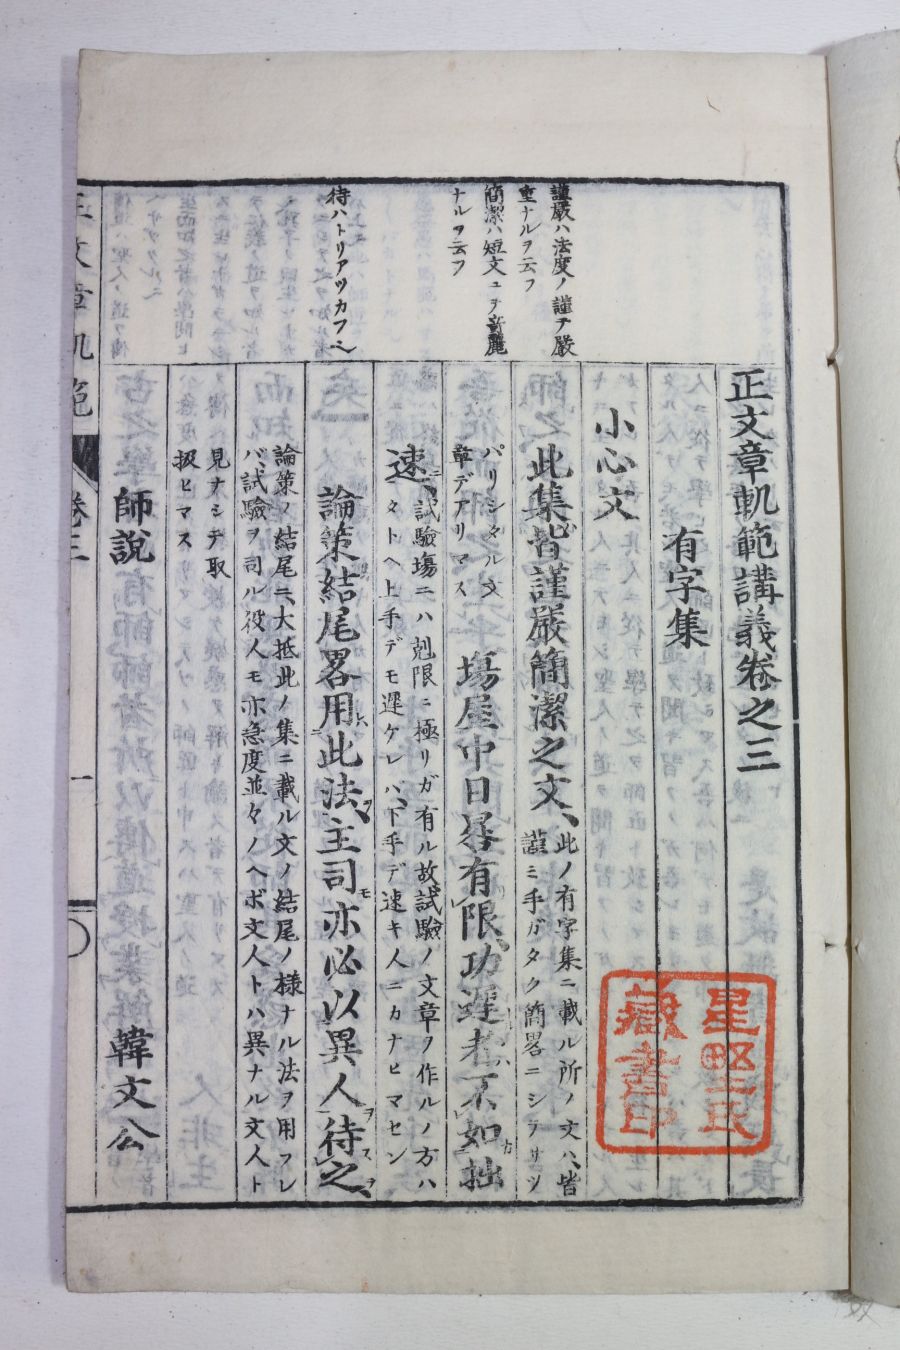 正文章軌範講義卷之三
有字集
小心文
此集皆謹嚴簡潔之文、
此ノ有字集ニ載ル所ノ文ハ、皆
謹ミ手ガタク簡畧ニシテサツ
パリシタル文
章デアリマス
塲屋中日晷有限功遲者不如拙
速、
試驗塲ニハ剋限ニ極リガ有ル故試驗ノ文章ヲ作ルノ方ハ
タトヘ上手デモ遲ケレバ、下手デ速キ人ニカナヒマセン
論策結尾畧用此法、主司亦必以異人待之
論策ノ結尾ニ、大抵此ノ集ニ載ル文ノ結尾ノ樣ナル法ヲ用フレ
バ、試驗ヲ司ル役人モ亦急度並々ノヘボ文人トハ異ナル文人ト
見ナシテ取
扱ヒマス
師說
韓文公
謹嚴ハ法度ノ謹テ嚴
重ナルヲ云フ
簡潔ハ短文ニテ奇麗
ナルヲ云フ
待ハトリアツカフ
正文章軌範
卷三
一
星野氏
藏書印